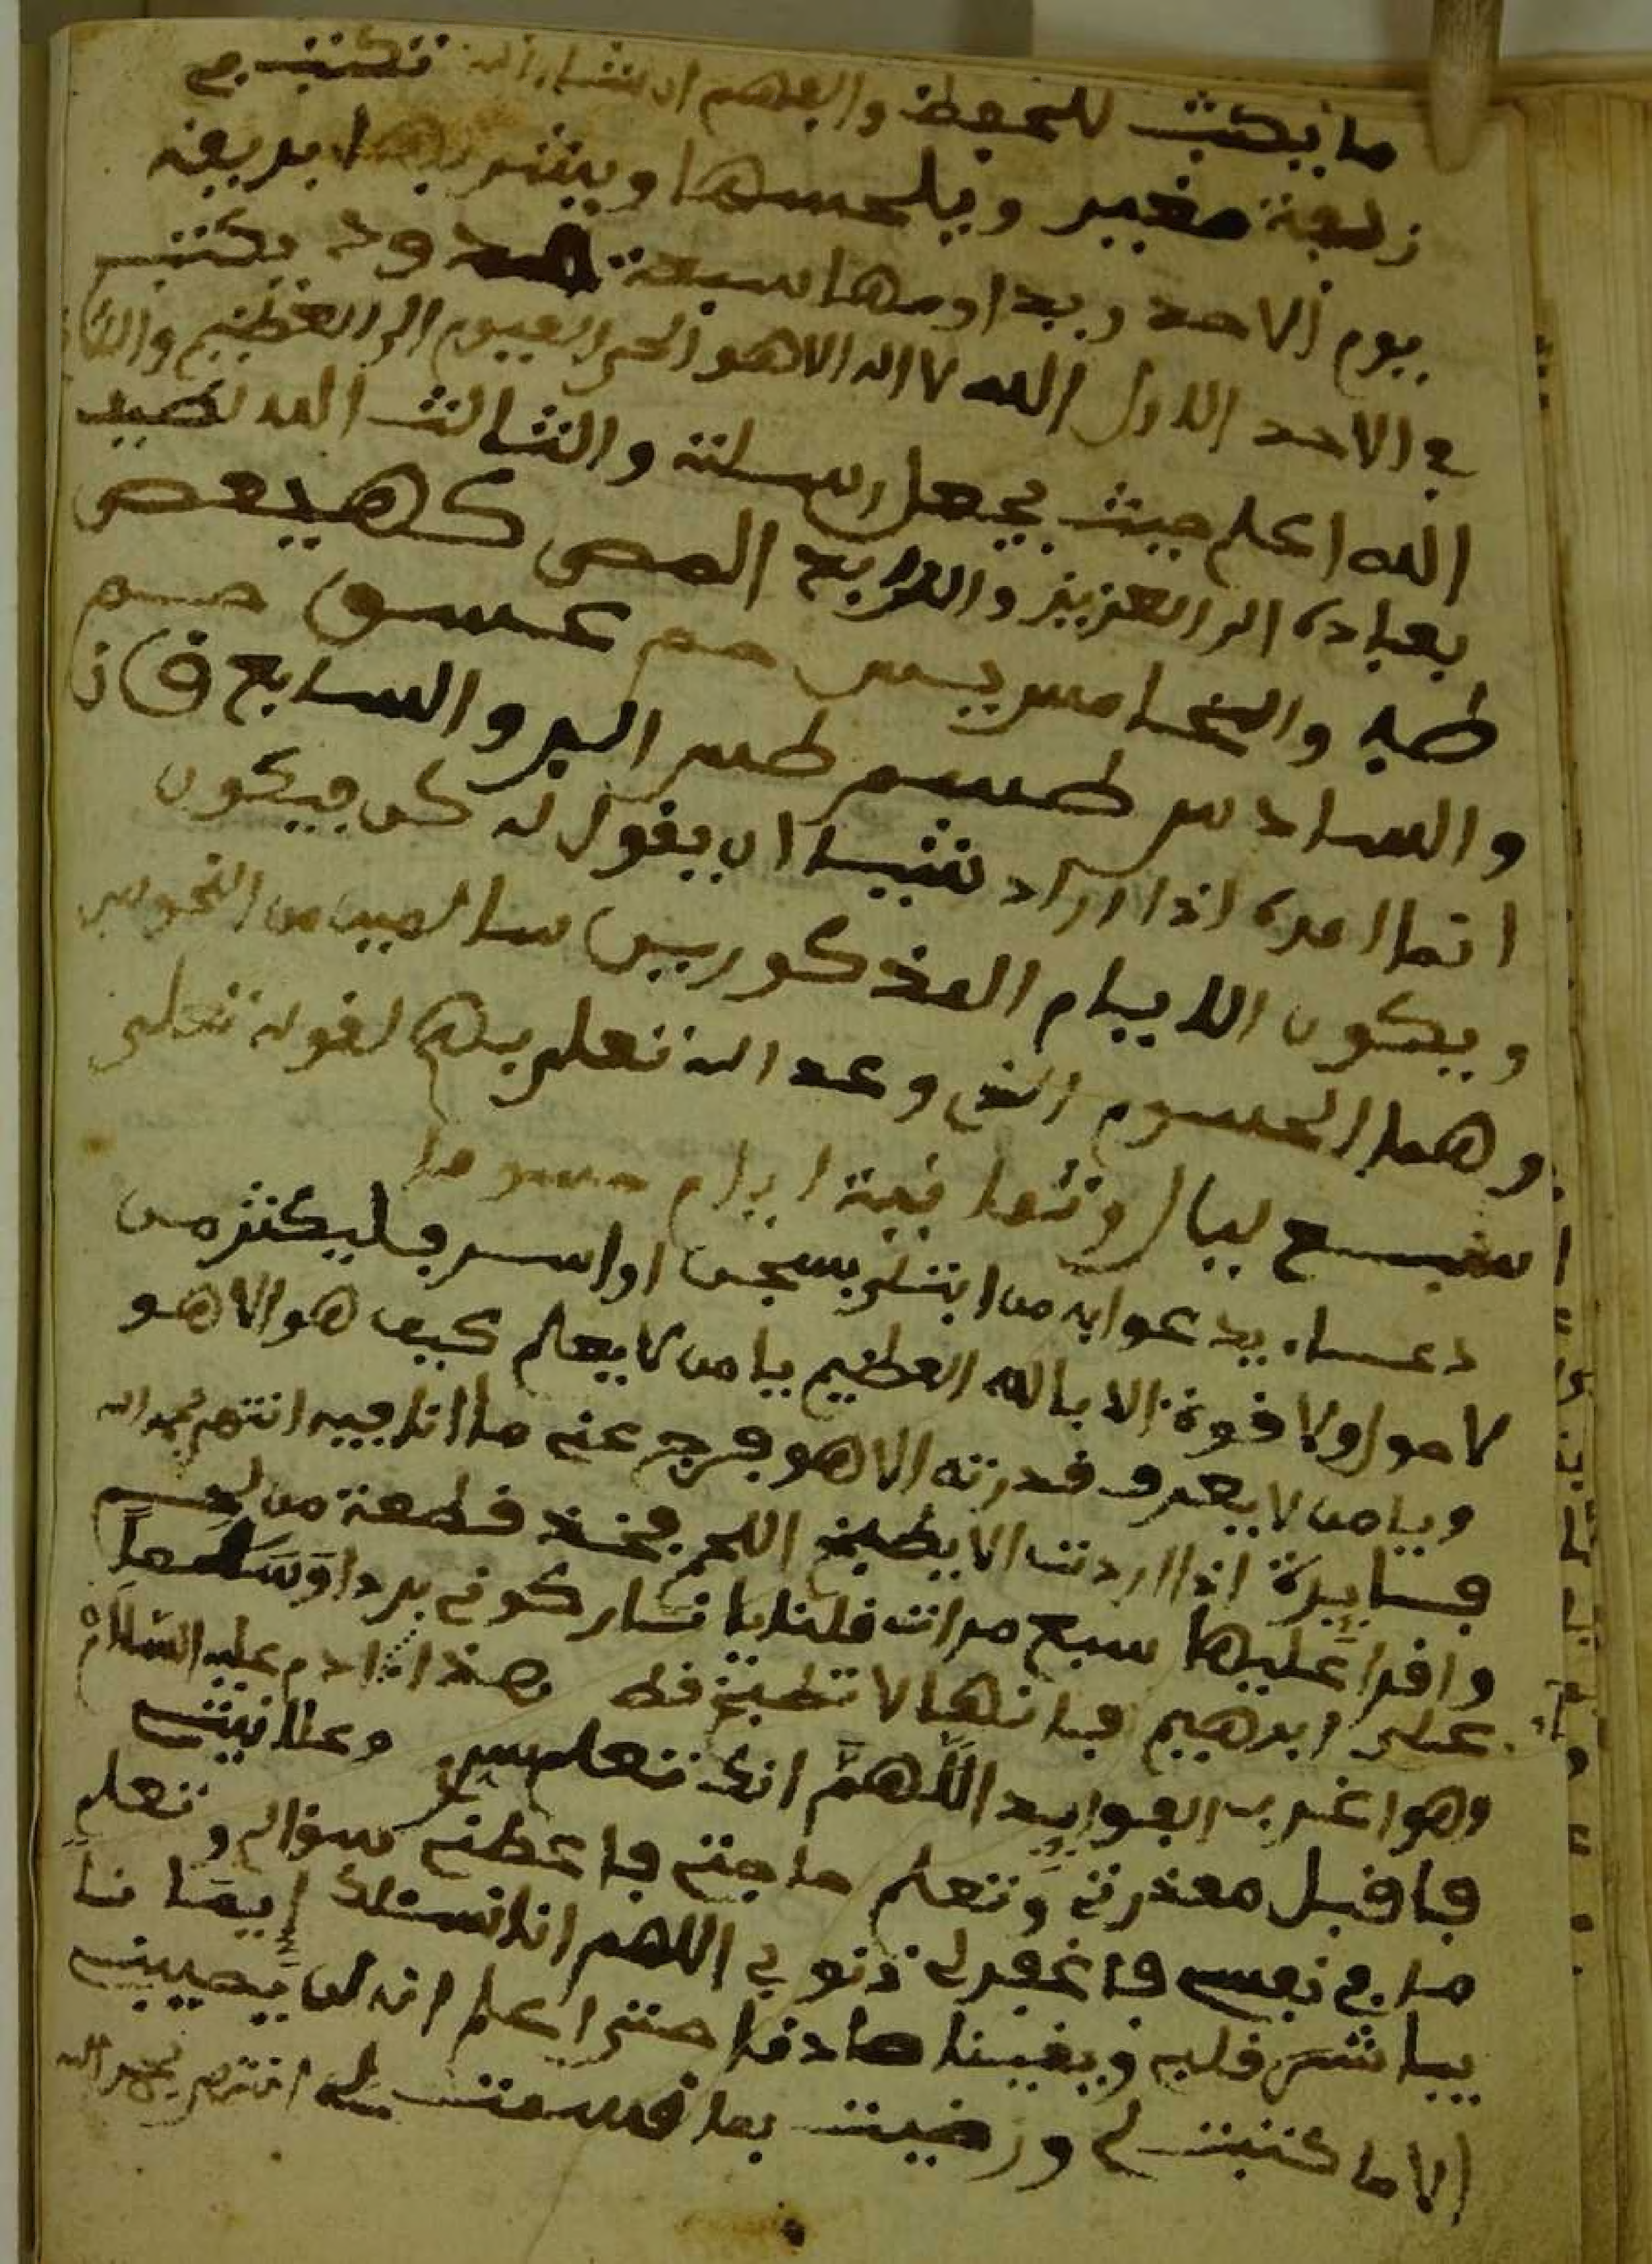 ما يكتب للحفظ والفهم ان شاء الله تكتب في
زليفة مغير ويلحسها ويشربها بريقه
يوم الاحد ويداومها سبعة حدود يكتب
في الاحد الاول الله لا اله الا هو الحي القيوم الى العظيم والثاني
الله اعلم حيث يجعل رسلته والثالث الله لطيف
بعباده الى العزيز والرابع المص كهيعص
طه والخامس يس حم عسق حم
والسادس طسم طس الر والسابع ق ن
انما امره اذا اراد شيا ان يقول له كن فيكون
ويكون الايام المذكورين سالمين من النحوس
وهما الحسوم الذي وعد الله تعلى بهم لقوله تعلى
سبع ليال وثمانية ايام حسوما
دعاء يدعوا به من ابتلى بسجن او اسر فليكثر من
لا حول ولا قوة الا بالله العظيم يا من لا يعلم كيف هو الا هو
ويا من لا يعرف قدرته الا هو فرج عني ما انا فيه انتهى بحمد الله
فايدة اذا اردت الا يطبخ اللحم فخذ قطعة من لحم
واقرا عليها سبع مرات قلنا يا نار كوني بردا وَسَلَاماً
على ابرهيم فانها لا تطبخ قط بهذا ادم عليه السلام
وهو اغرب الفوايد اللَّهمَّ انك تعلم سري وعلانيتي
فاقبل معذرتي وتعلم حاجتي فاعطني سؤالي وتعلم
ما في نفسي فاغفر لي ذنوبي اللهم انا نسئلك إيمَاناً
يباشر قلبي ويقينا صادقا حتى اعلم انه لن يصيبني
الا ما كتبت لي ورضيت بما قسمت لي انتهى بحمد الله